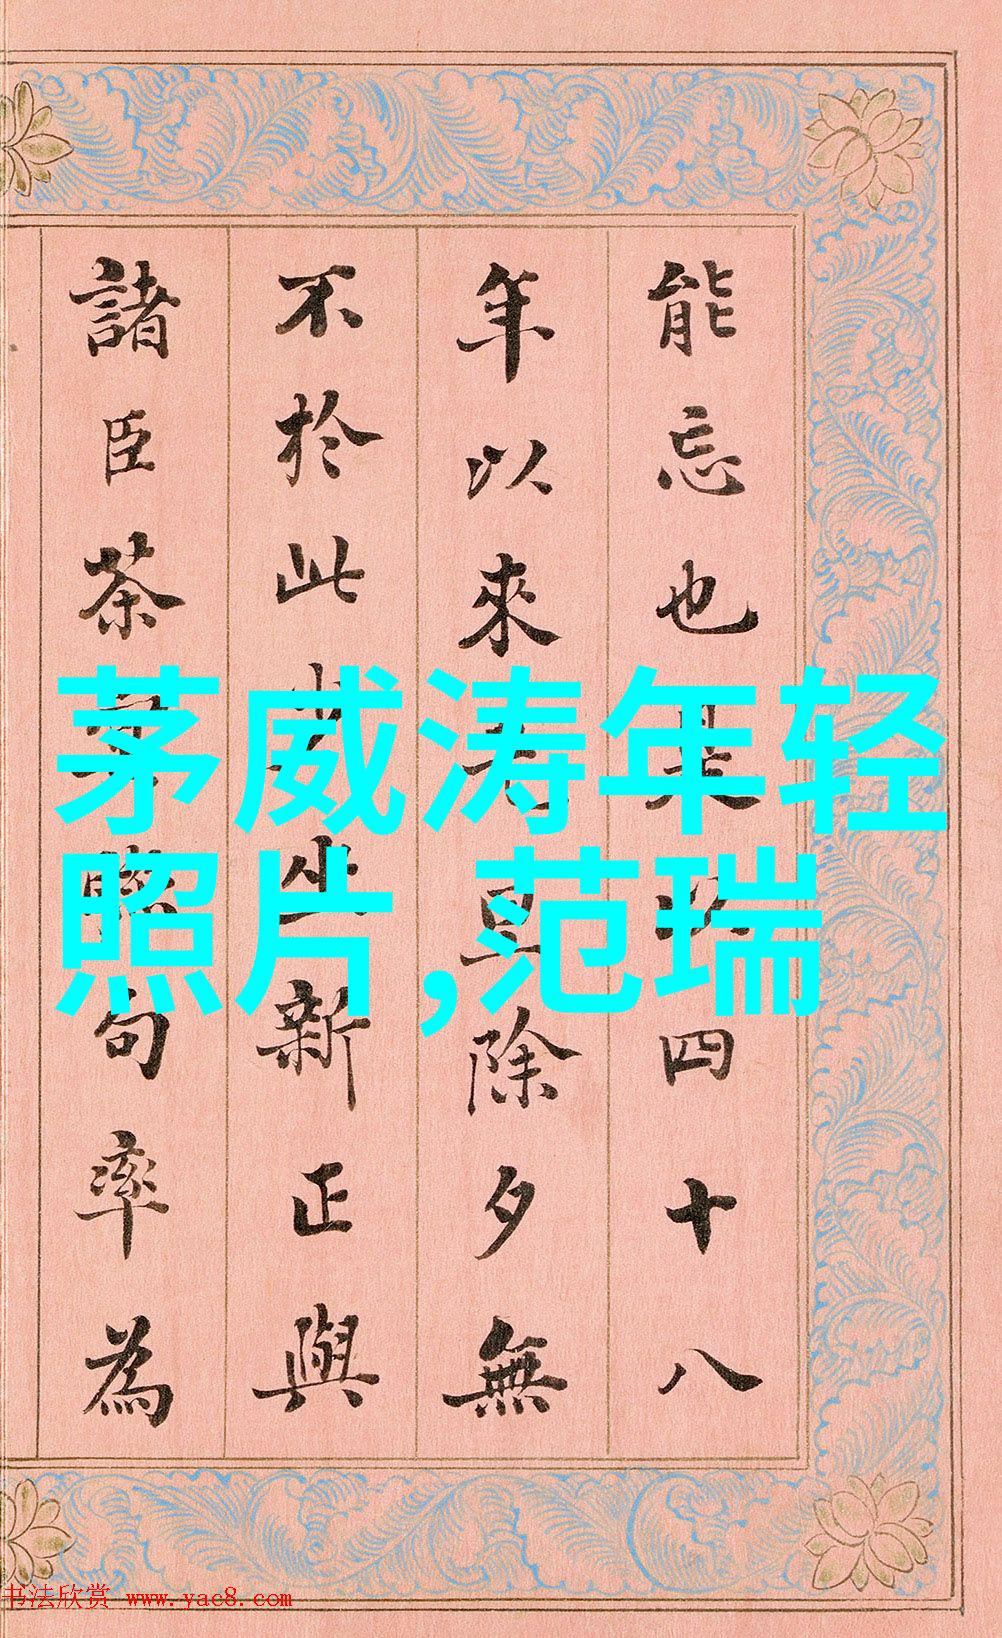 能忘也是以四十八
年以來元旦除夕無
不於此少坐新正與
諸臣茶宴聯句率為
茅威涛年轻
照片,范瑞
书法欣赏 www.yac8.com